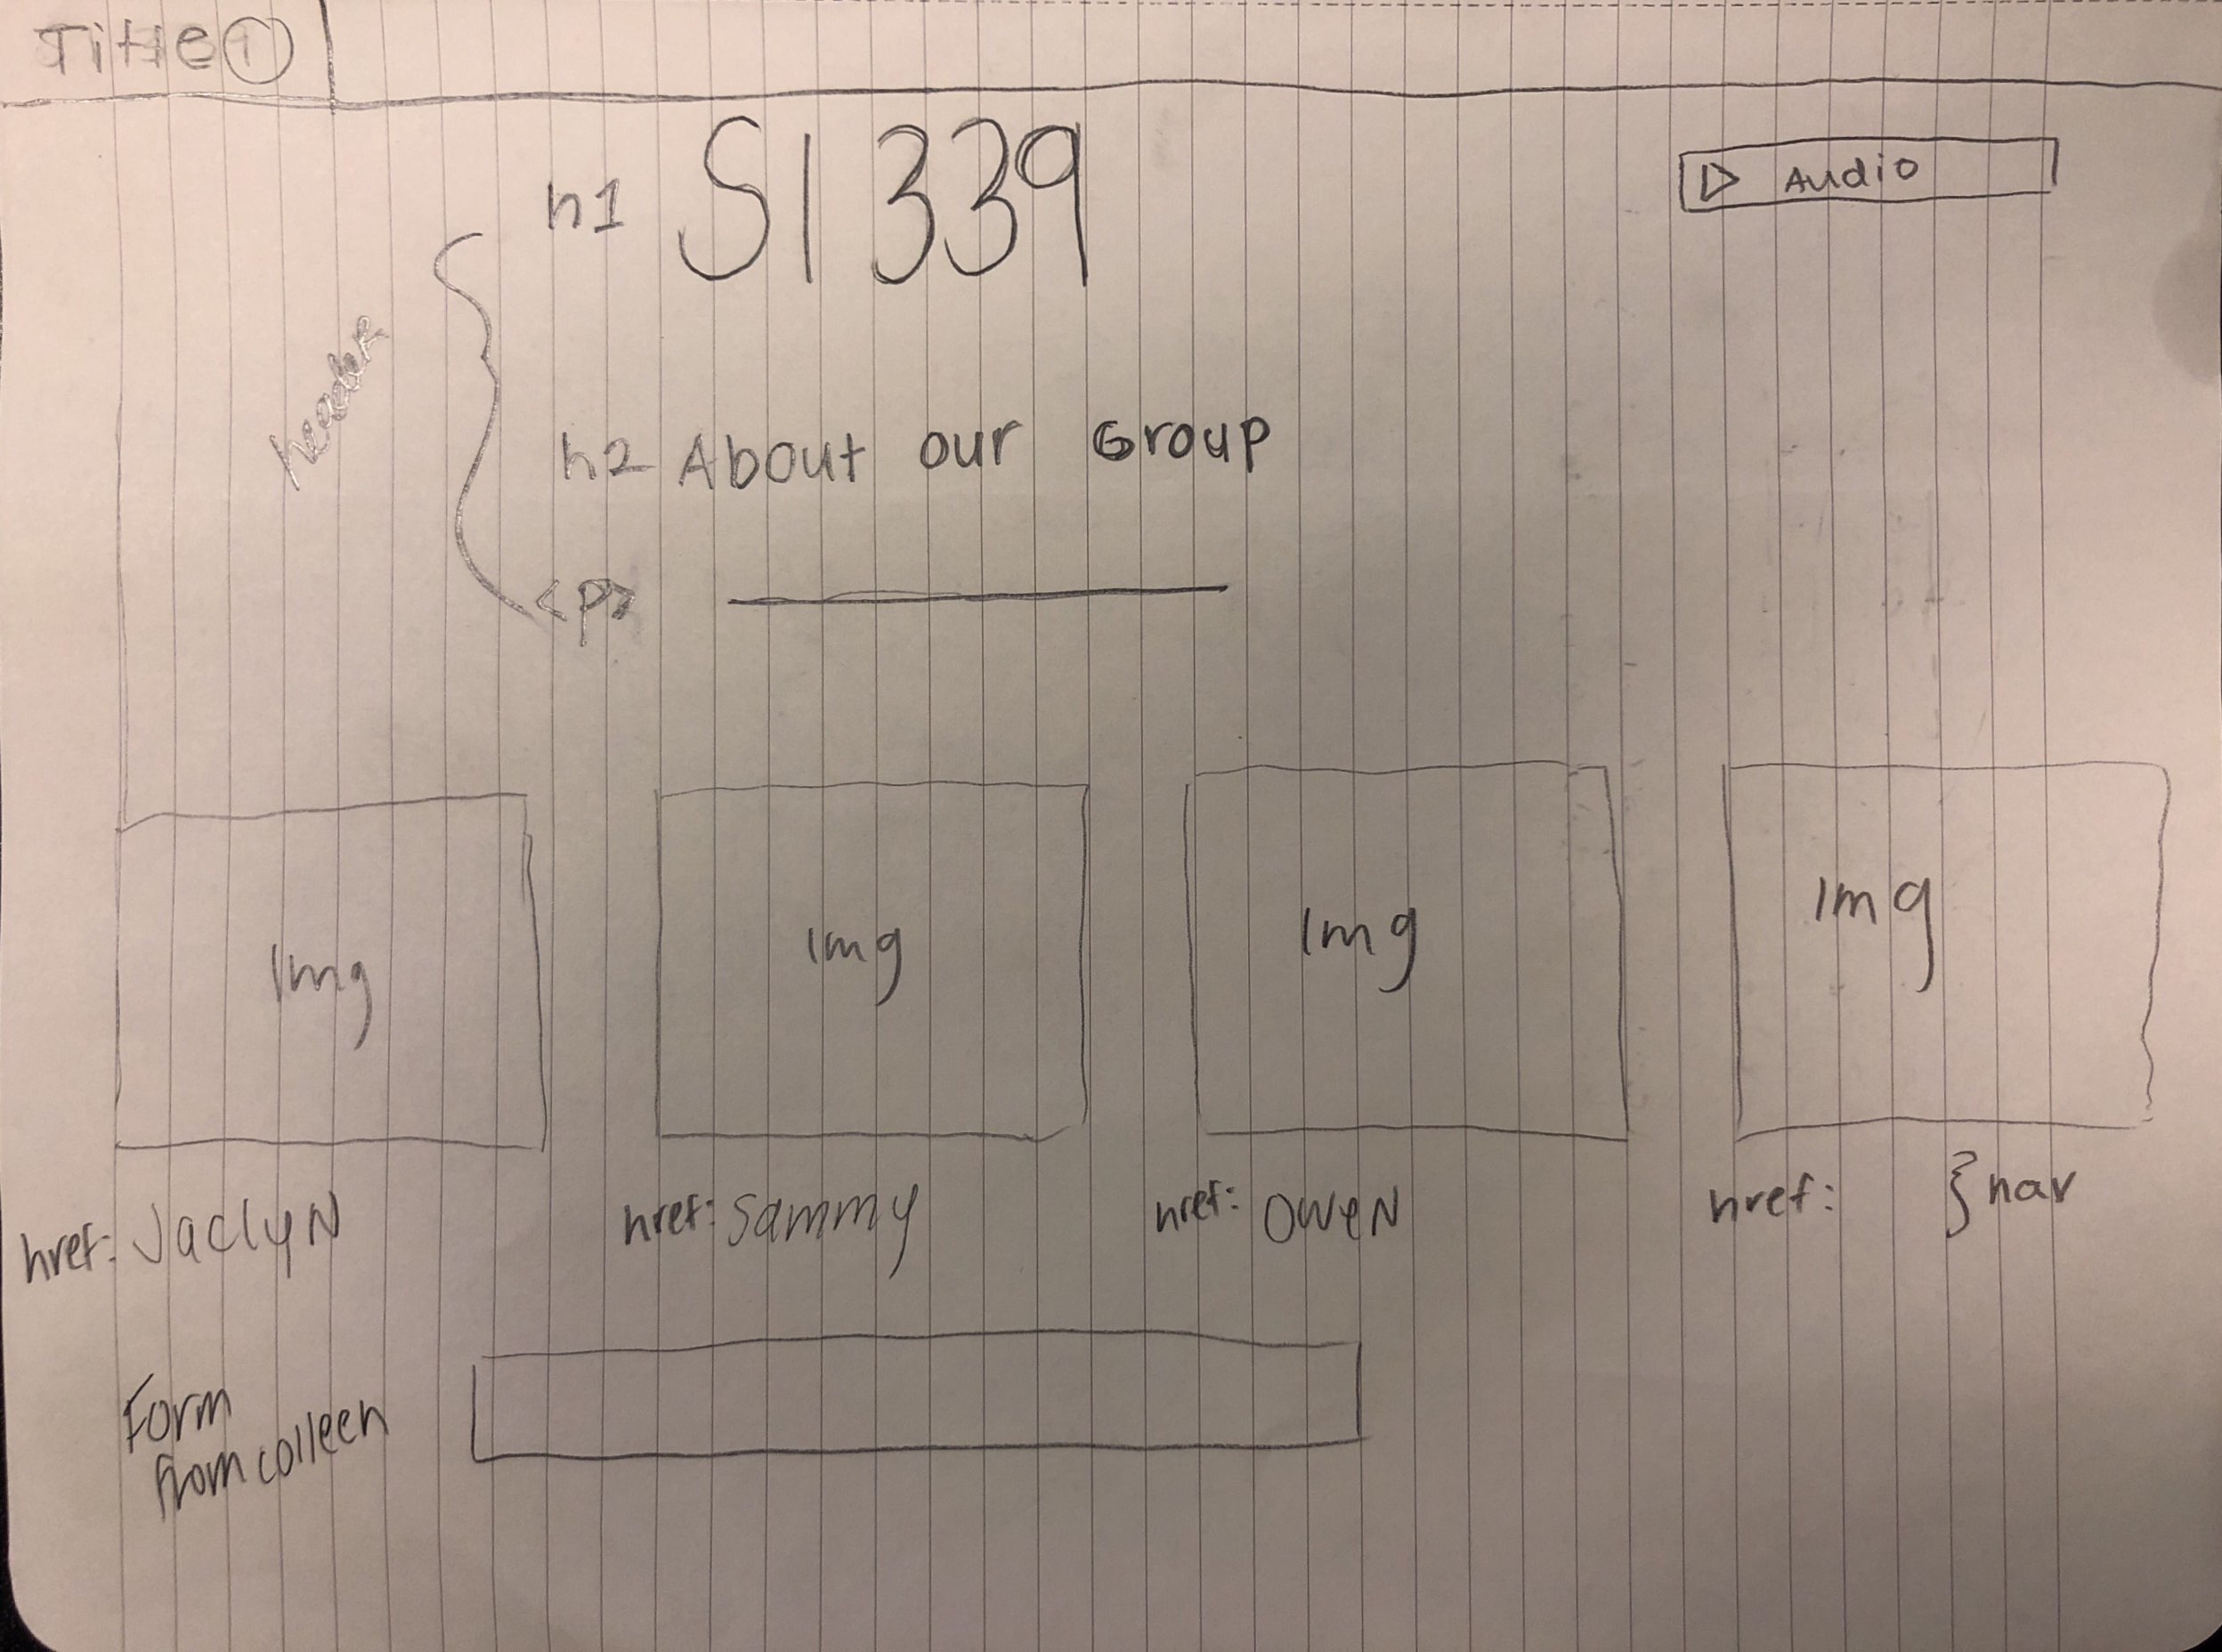 Title 1
h1 SI 339
▷ Audio
header
h2 About our Group
<p>
Img
Img
Img
Img
href: JaclyN
href: Sammy
href: OweN
href: } nav
Form
from colleen